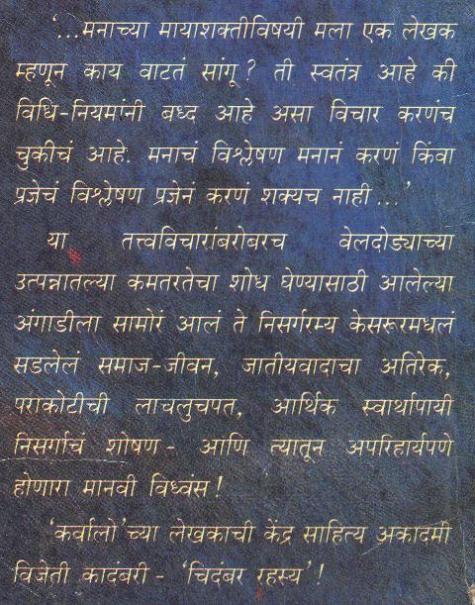 ‘...मनाच्या मायाशक्तीविषयी मला एक लेखक
म्हणून काय वाटतं सांगू? ती स्वतंत्र आहे की
विधि-नियमांनी बध्द आहे असा विचार करणंच
चुकीचं आहे. मनाचं विश्लेषण मनानं करणं किंवा
प्रजेचं विश्लेषण प्रजेनं करणं शक्यच नाही...’
या तत्त्वविचारांबरोबरच वेलदोड्याच्या
उत्पन्नातल्या कमतरतेचा शोध घेण्यासाठी आलेल्या
अंगाडीला सामोरं आलं ते निसर्गरम्य केसरूरमधलं
सडलेलं समाज-जीवन, जातीयवादाचा अतिरेक,
पराकोटीची लाचलुचपत, आर्थिक स्वार्थापायी
निसर्गाचं शोषण - आणि त्यातून अपरिहार्यपणे
होणारा मानवी विध्वंस!
‘कर्वालो’च्या लेखकाची केंद्र साहित्य अकादमी
विजेती कादंबरी - ‘चिदंबर रहस्य’!